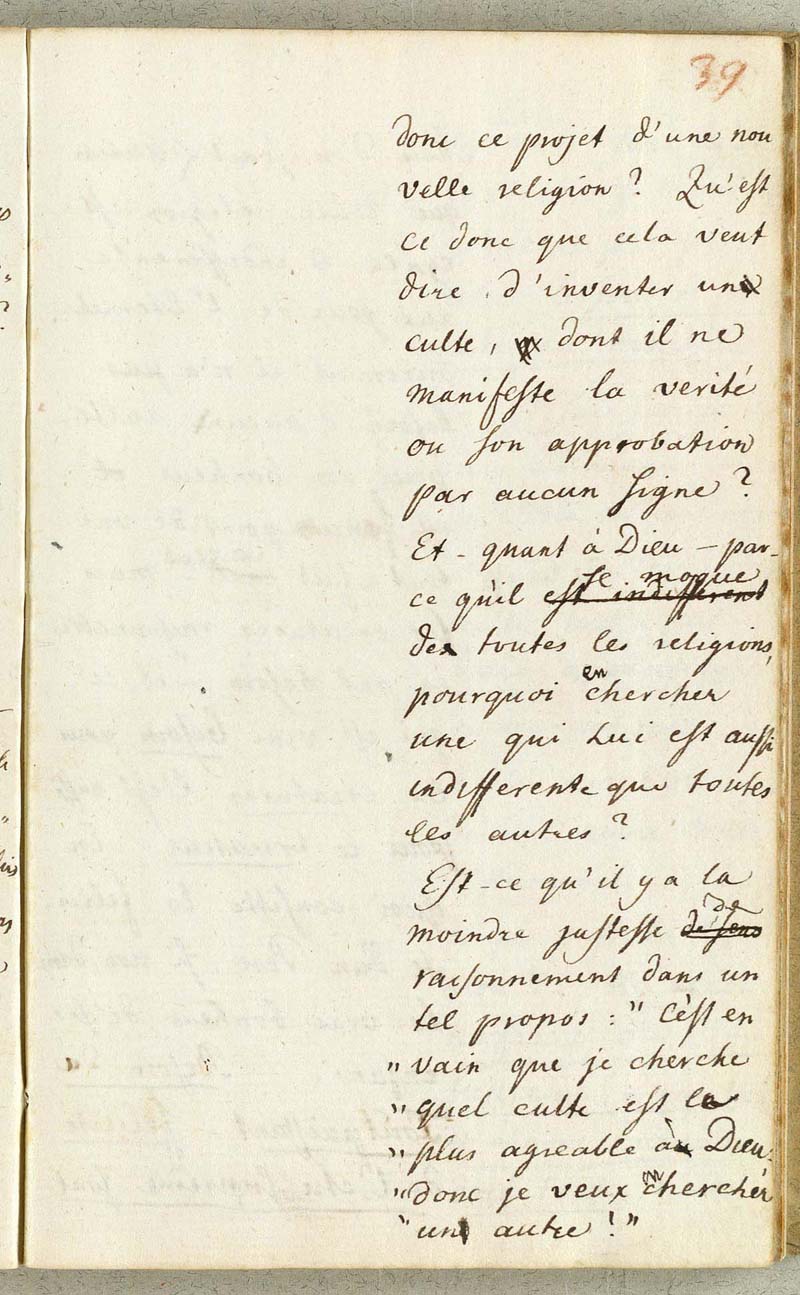 39
donc ce projet d'une nou
velle religion? Qu'est
ce donc que cela veut
dire d'inventer un
culte, dont il ne
manifeste la verité
ou son approbation
par aucun signe?
Et - quant à Dieu - par-
se moque
ce qu'il est indifferent
de toutes les religions,
en
pourquoi chercher
une qui Lui est aussi
indifferente que toutes
les autres?
Est-ce qu'il y a la
de
moindre justesse de sens
raisonnement dans un
tel propos: "C'est en
"vain que je cherche
"quel culte est le
"plus agreable à Dieu:
"donc je veux en chercher
"un autre!"